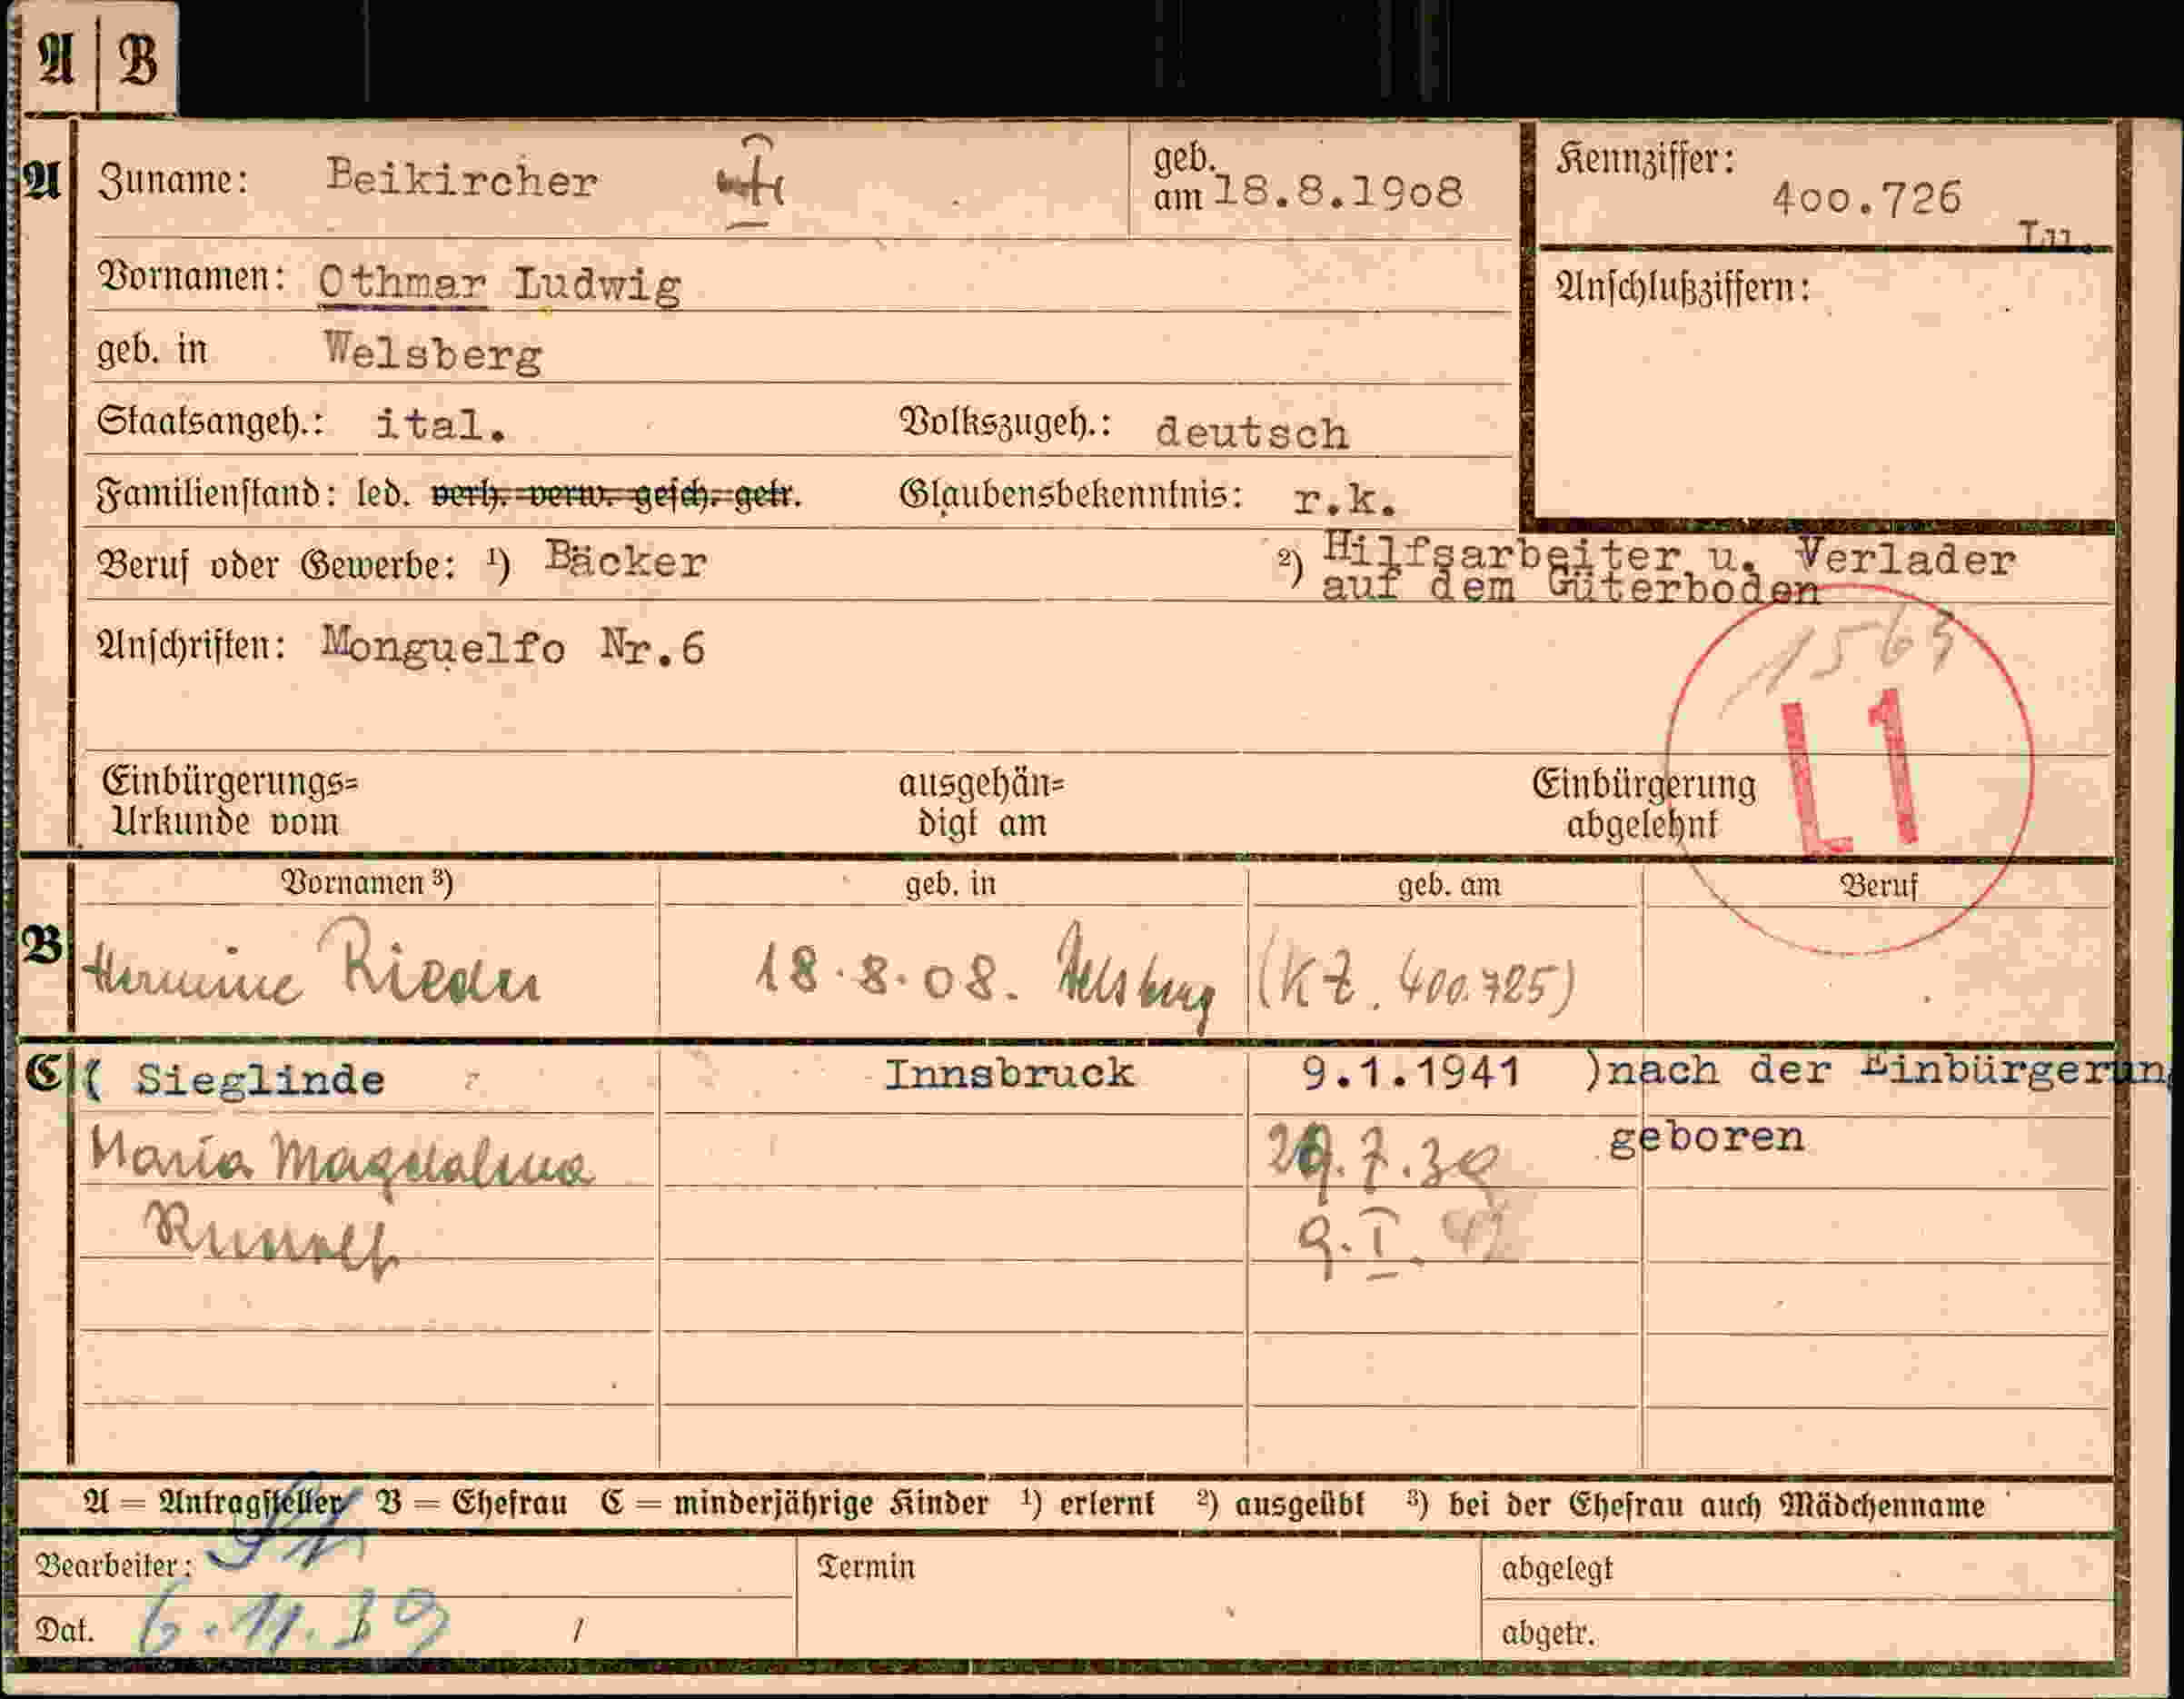 A | B
A Zuname: Beikircher geb. am 18.8.1908 Kennziffer: 400.726 Lu.
Vornamen: Othmar Ludwig Anschlußziffern:
geb. in Welsberg
Staatsangeh.: ital. Volkszugeh.: deutsch
Familienstand: led. verh. verw. gesch. getr. Glaubensbekenntnis: r.k.
Beruf oder Gewerbe: ¹) Bäcker ²) Hilfsarbeiter u. Verlader
auf dem Güterboden
Anschriften: Monguelfo Nr.6
1563
L1
Einbürgerungs= ausgehän= Einbürgerung
Urkunde vom digt am abgelehnt
Vornamen ³) geb. in geb. am Beruf
B Hermine Rieder 18.8.08. Welsberg (KZ. 400.725)
C ( Sieglinde Innsbruck 9.1.1941 )nach der Einbürgerun
geboren
Maria Magdalena 29.7.39
9.I.
A = Antragsteller B = Ehefrau C = minderjährige Kinder ¹) erlernt ²) ausgeübt ³) bei der Ehefrau auch Mädchenname
Bearbeiter: Termin abgelegt
Dat. 6.11.39 / abgetr.